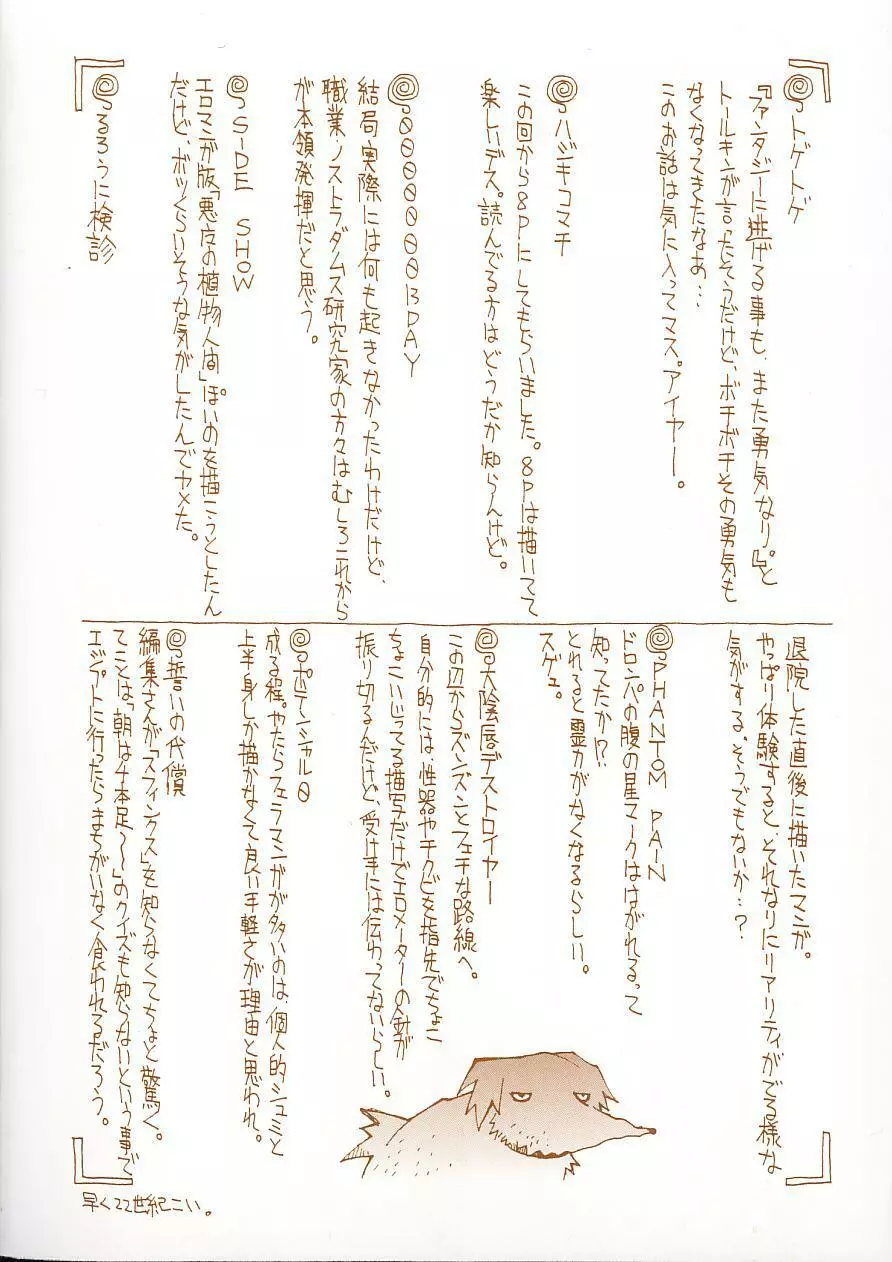 トゲトゲ
『ファンタジーに逃げる事も、また勇気なり。』と
トールキンが言ったそうだけど、ボチボチその勇気も
なくなってきたなあ…
このお話は気に入ってマス。アイヤー。
ハジキコマチ
この回から8Pにしてもらいました。8Pは描いてて
楽しいデス。読んでる方はどうだか知らんけど。
0000000B DAY
結局、実際には何も起きなかったわけだけど、
職業・ノストラダムス研究家の方々はむしろこれから
が本領発揮だと思う。
SIDE SHOW
エロマンガ版「悪夜の植物人間」ぽいのを描こうとしたん
だけど、ボツくらいそうな気がしたんでヤメた。
るろうに検診
退院した直後に描いたマンガ。
やっぱり体験すると、それなりにリアリティがでる様な
気がする。そうでもないか…?
PHANTOM PAIN
ドロンパの腹の星マークははがれるって
知ってたか!?
とれると霊力がなくなるらしい。
スゲェ。
大陰唇デストロイヤー
この辺からズンズンとフェチな路線へ。
自分的には、性器やチクビを指先でちょこ
ちょこいじってる描写だけでエロメーターの針が
振り切るんだけど、受け手には伝わってないらしい。
ポテンシャル0
成る程。やたらフェラマンガが多いのは、個人的シュミと
上半身しか描かなくて良い手軽さが理由と思われ。
誓いの代償
編集さんが「スフィンクス」を知らなくてちょと驚く。
てことは、「朝は4本足〜〜」のクイズも知らないという事で
エジプトに行ったらまちがいなく食われるだろう。
早く22世紀こい。